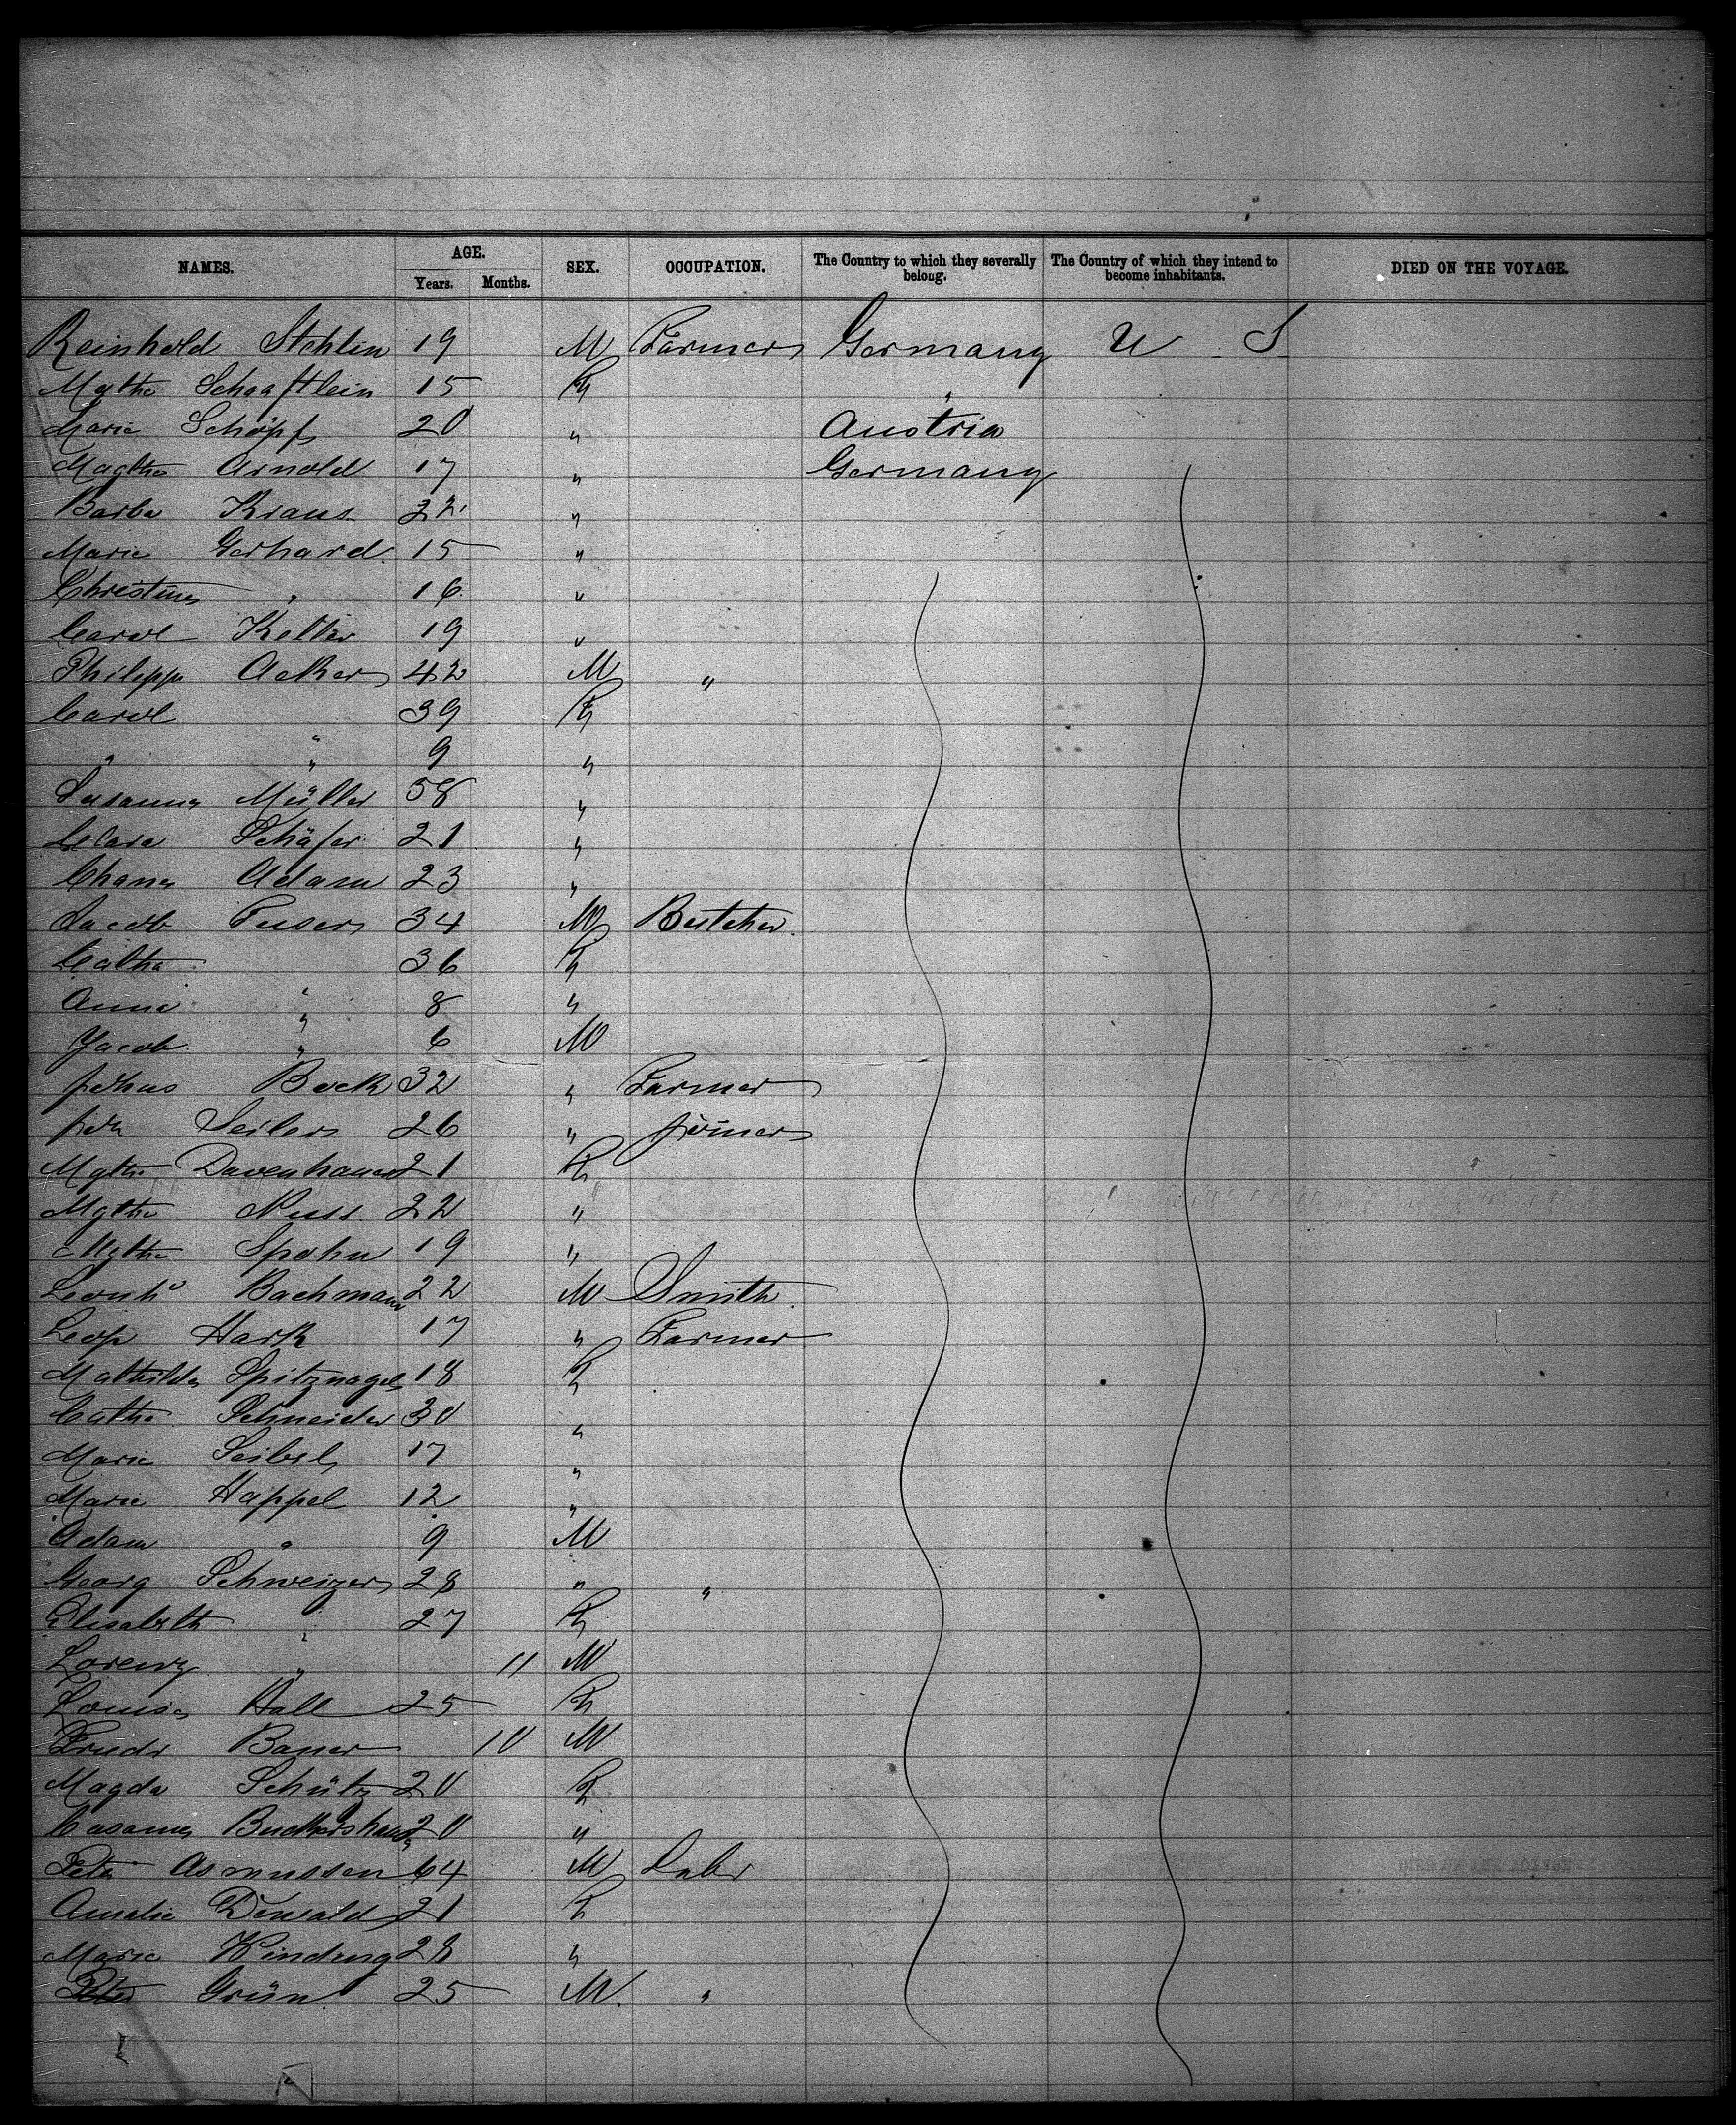 NAMES. AGE. Years. Months. SEX. OCCUPATION. The Country to which they severally belong. The Country of which they intend to become inhabitants. DIED ON THE VOYAGE.
Reinhold Stehlin 19 M Farmer Germany U S
Mgtha Schaaftlein 15 F "
Marie Schöpf 20 " Austria
Magtha Arnold 17 " Germany
Barba Kraus 22 "
Marie Gerhard 15 "
Christina " 16 "
Carol Keller 19 "
Philipp Acker 42 M "
Carol " 39 F
" " 9 "
Susanna Müller 58 "
Clara Schäfer 21 "
Adam 23 "
Jacob 34 M Butcher
Catha " 36 F
Anna " 8 "
Jacob " 6 M
Johns Bock 32 " Farmer
Joh Seiler 26 " Joiner
Mgtha Davenhauer 21 F
Mgtha Nuss 22 "
Mgtha Spohn 19 "
Leonhd Bachmann 22 M Smith
Leop Hark 17 " Farmer
Mathilda Spitznagel 18 F
Catha Schneider 30 "
Marie Seibel 17 "
Marie Happel 12 "
Adam " 9 M
Georg Schweizer 28 " "
Elisabeth " 27 F
Lorenz " 11 M
Louisa Hall 25 F
Friedr Bauer 10 M
Magda Schütz 20 F
20 "
Peter Asmussen 64 M Labr
Amalie 21 F
Marie 28 "
Peter Grün 25 M "